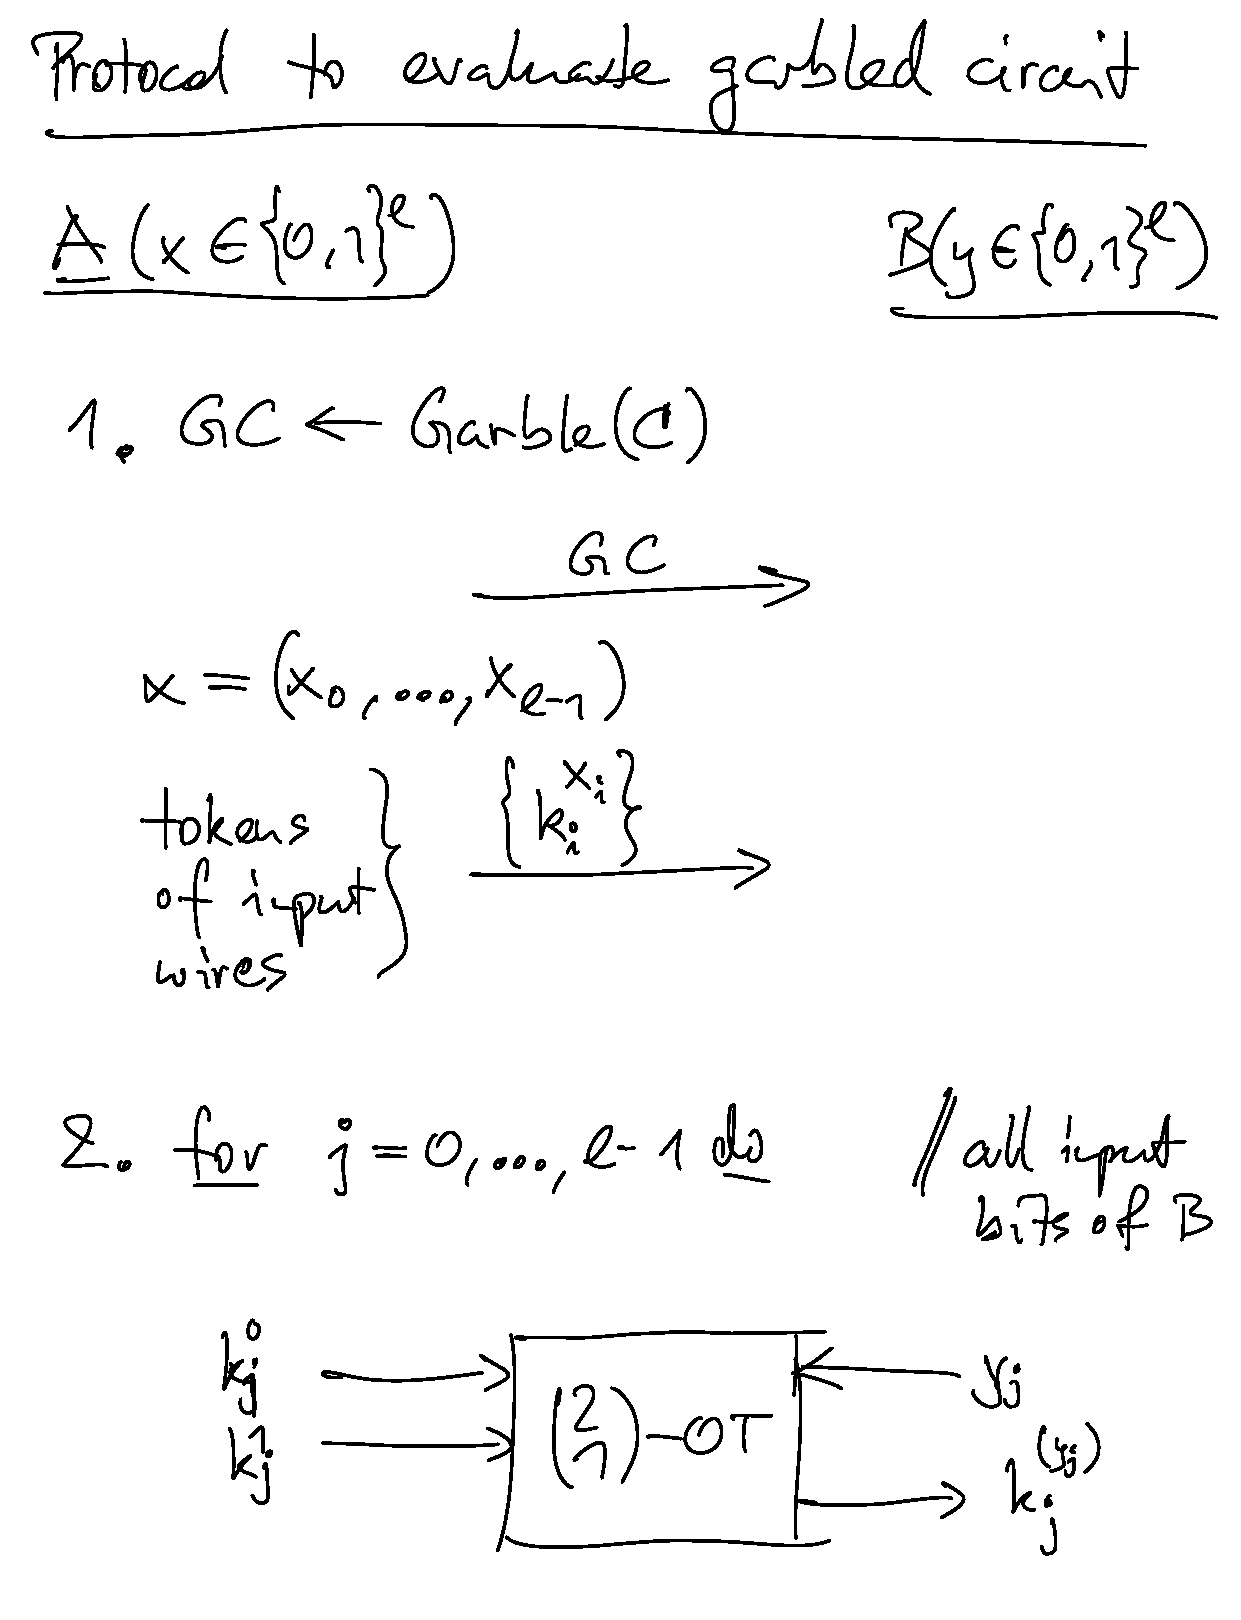 Protocol to evaluate garbled circuit
A (x ∈ {0,1}^ℓ) B(y ∈ {0,1}^ℓ)
1. GC ← Garble(C)
GC
x = (x_0, ..., x_{ℓ-1})
{k_i^{x_i}}
tokens
of input
wires
2. for j = 0, ..., ℓ-1 do // all input
bits of B
k_j^0
k_j^1
(2 1)-OT
y_j
k_j^{(y_j)}